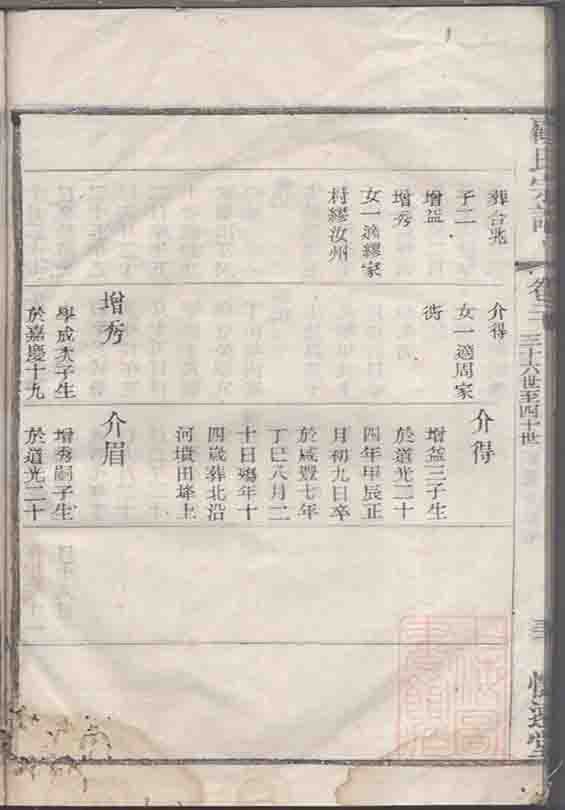 氏宗譜
卷二
三十六世至四十世
葬合兆
子二
增益
增秀
女一適繆家
村繆汝州
介得
女一適周家
街
增秀
學成次子生
於嘉慶十九
介得
增益三子生
於道光二十
四年甲辰正
月初九日卒
於咸豐七年
丁巳八月二
十日殤年十
四歲葬北沿
河墳田埄上
介眉
增秀嗣子生
於道光二十
上海圖
書館